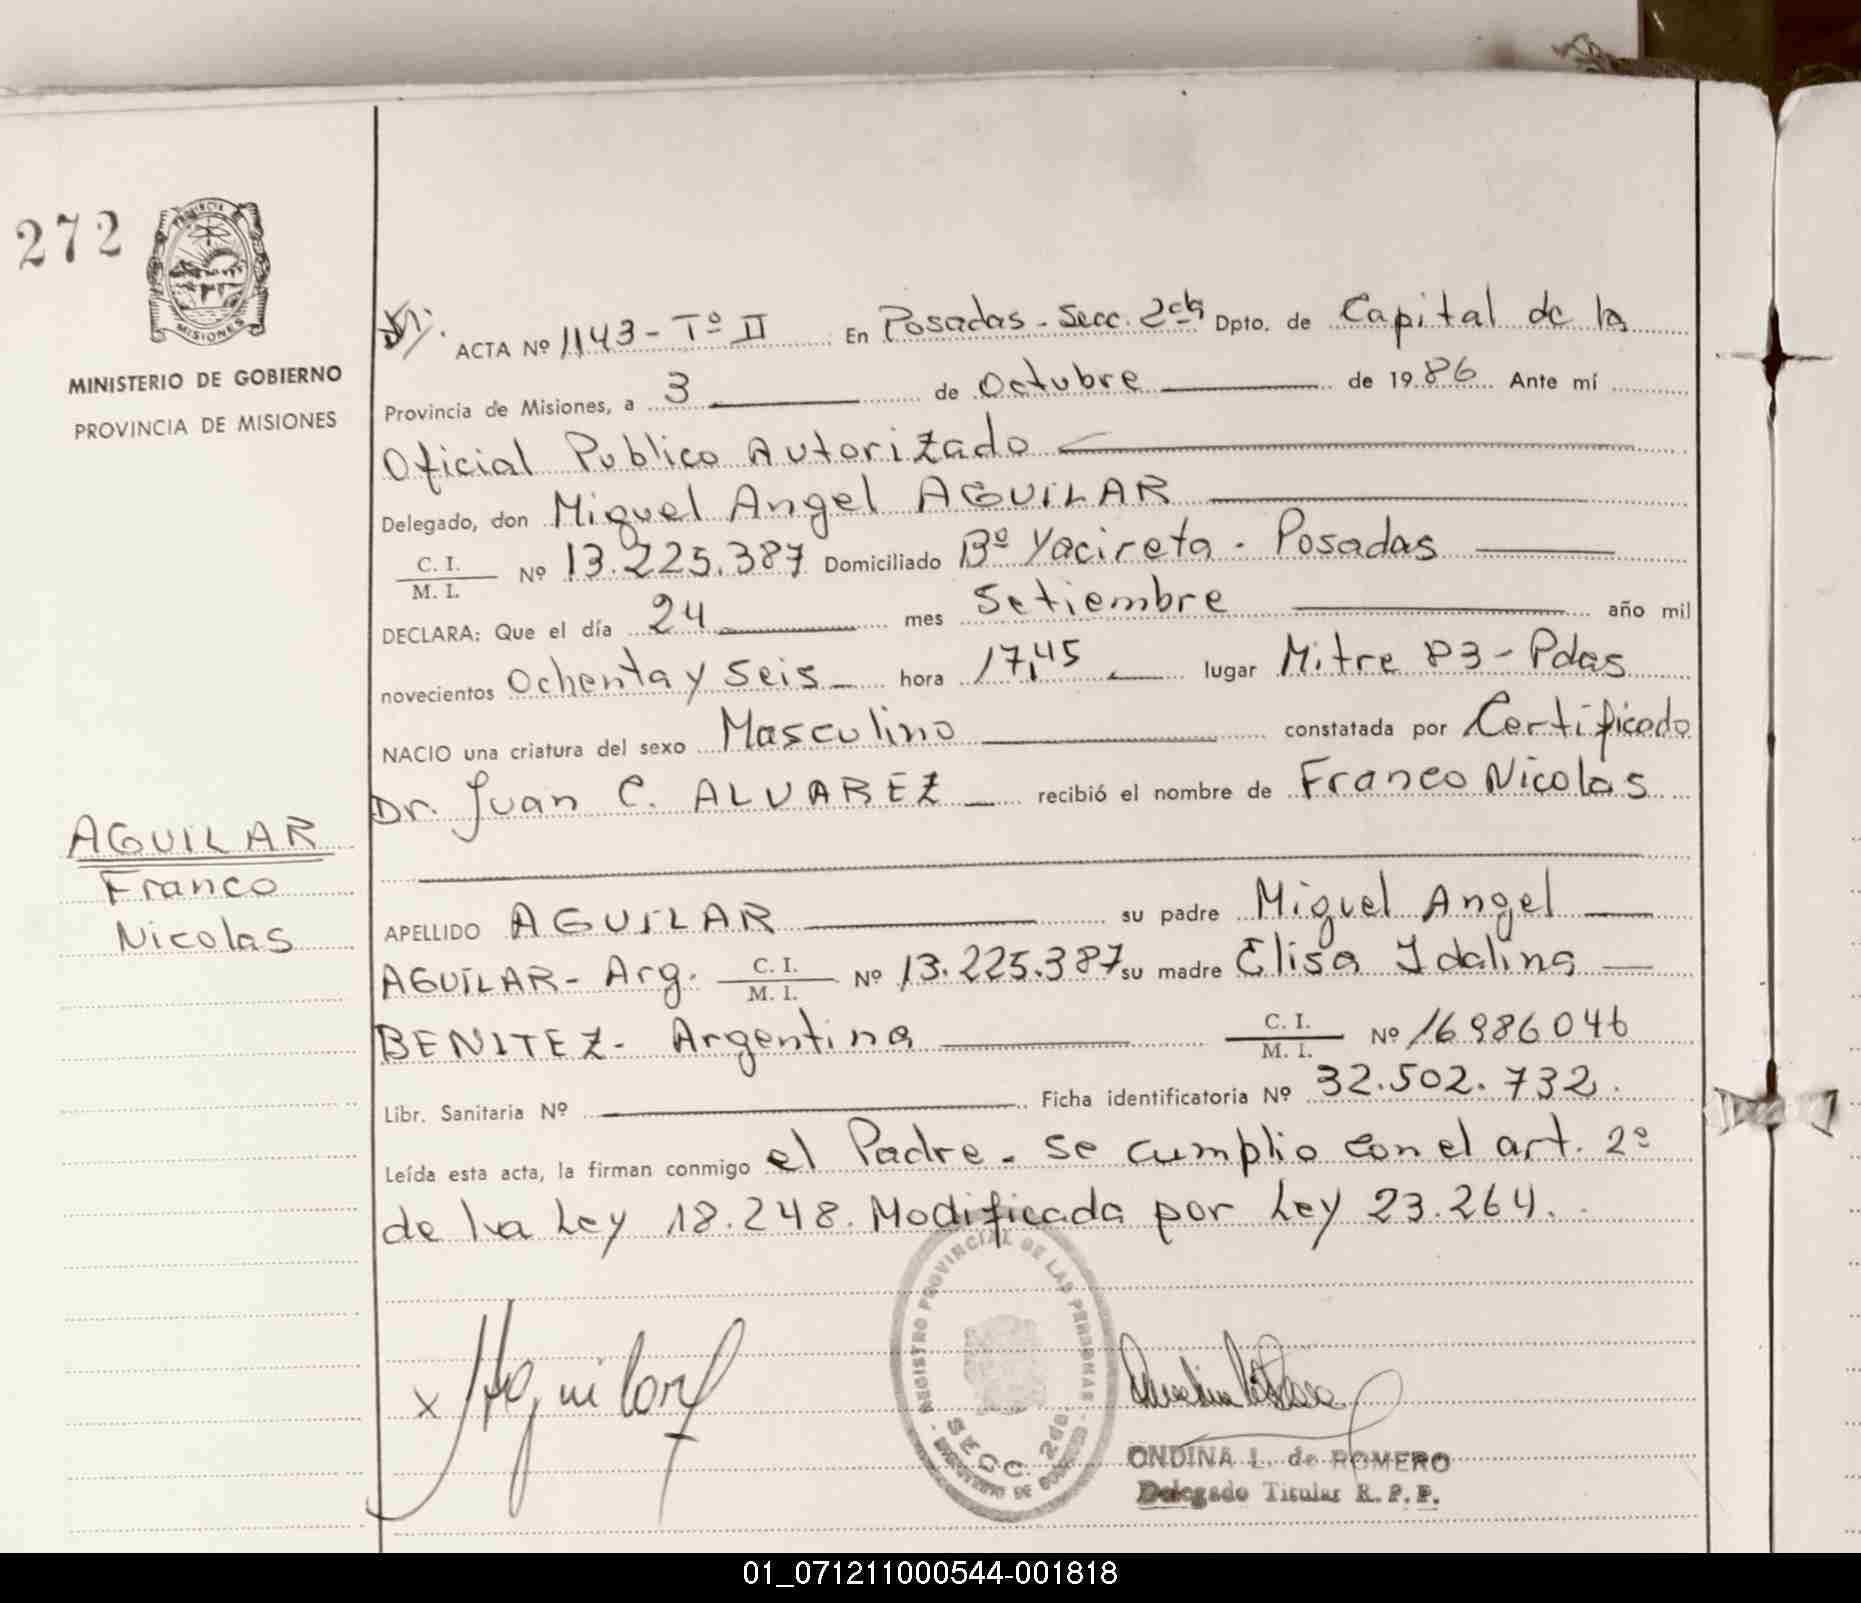 272
PROVINCIA DE
MISIONES
MINISTERIO DE GOBIERNO
PROVINCIA DE MISIONES
AGUILAR
Franco
Nicolas
ACTA Nº 1143 - Tº II En Posadas - Secc. 2da Dpto. de Capital de la
Provincia de Misiones, a 3 de Octubre de 1986 Ante mí
Oficial Publico Autorizado
Delegado, don Miguel Angel AGUILAR
C. I.
M. I. Nº 13.225.387 Domiciliado Bº Yacireta - Posadas
DECLARA: Que el día 24 mes Setiembre año mil
novecientos Ochenta y Seis hora 17,45 lugar Mitre 83 - Pdas
NACIO una criatura del sexo Masculino constatada por Certificado
Dr. Juan C. ALVAREZ recibió el nombre de Franco Nicolas
APELLIDO AGUILAR su padre Miguel Angel
AGUILAR - Arg. C. I. M. I. Nº 13.225.387 su madre Elisa Idalina
BENITEZ - Argentina C. I. M. I. Nº 16986046
Libr. Sanitaria Nº Ficha identificatoria Nº 32.502.732.
Leída esta acta, la firman conmigo el Padre - se cumplio con el art. 2º
de la Ley 18.248. Modificada por Ley 23.264.
x Aguilar
REGISTRO PROVINCIAL DE LAS PERSONAS
SECC. 2da.
MINISTERIO DE GOBIERNO
ONDINA L. de ROMERO
Delegado Titular R. P. P.
01_071211000544-001818